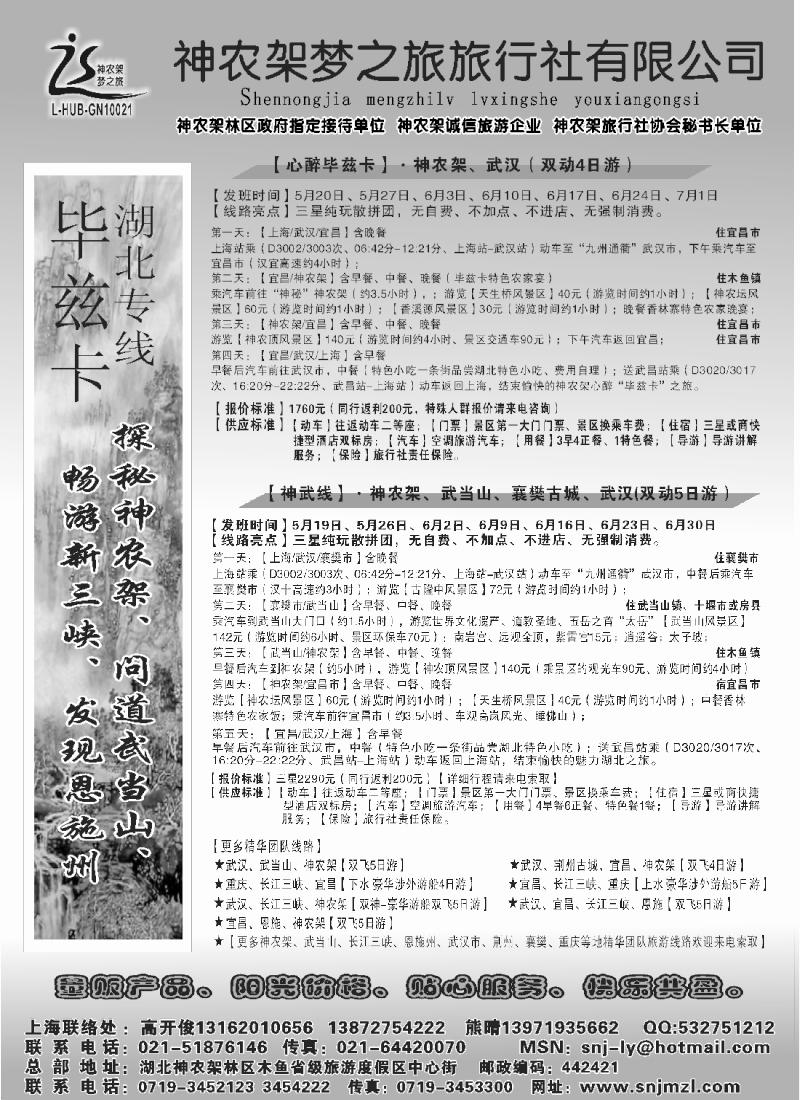 神农架
梦之旅
L-HUB-GN10021
神农架梦之旅旅行社有限公司
Shennongjia mengzhilv lvxingshe youxiangongsi
神农架林区政府指定接待单位 神农架诚信旅游企业 神农架旅行社协会秘书长单位
湖北专线
毕兹卡
探秘神农架、问道武当山、
畅游新三峡、发现恩施州
【心醉毕兹卡】·神农架、武汉（双动4日游）
【发班时间】5月20日、5月27日、6月3日、6月10日、6月17日、6月24日、7月1日
【线路亮点】三星纯玩散拼团，无自费、不加点、不进店、无强制消费。
第一天：【上海/武汉/宜昌】含晚餐 住宜昌市
上海站乘（D3002/3003次、06:42分-12:21分、上海站-武汉站）动车至“九州通衢”武汉市，下午乘汽车至
宜昌市（汉宜高速约4小时）；
第二天：【宜昌/神农架】含早餐、中餐、晚餐（毕兹卡特色农家宴） 住木鱼镇
乘汽车前往“神秘”神农架（约3.5小时），；游览【天生桥风景区】40元（游览时间约1小时）；【神农坛风
景区】60元（游览时间约1小时）；【香溪源风景区】30元（游览时间约1小时）；晚餐香林寨特色农家晚宴；
第三天：【神农架/宜昌】含早餐、中餐、晚餐 住宜昌市
游览【神农顶风景区】140元（游览时间约4小时、景区交通车90元）；下午汽车返回宜昌； 住宜昌市
第四天：【宜昌/武汉/上海】含早餐
早餐后汽车前往武汉市，中餐（特色小吃一条街品尝湖北特色小吃、费用自理）；送武昌站乘（D3020/3017
次、16:20分-22:22分、武昌站-上海站）动车返回上海，结束愉快的神农架心醉“毕兹卡”之旅。
【报价标准】1760元（同行返利200元，特殊人群报价请来电咨询）
【供应标准】【动车】往返动车二等座；【门票】景区第一大门门票、景区换乘车费；【住宿】三星或商快
捷型酒店双标房；【汽车】空调旅游汽车；【用餐】3早4正餐、1特色餐；【导游】导游讲解
服务；【保险】旅行社责任保险。
【神武线】·神农架、武当山、襄樊古城、武汉(双动5日游）
【发班时间】5月19日、5月26日、6月2日、6月9日、6月16日、6月23日、6月30日
【线路亮点】三星纯玩散拼团，无自费、不加点、不进店、无强制消费。
第一天：【上海/武汉/襄樊市】含晚餐 住襄樊市
上海站乘（D3002/3003次、06:42分-12:21分、上海站-武汉站）动车至“九州通衢”武汉市，中餐后乘汽车
至襄樊市（汉十高速约3小时）；游览【古隆中风景区】72元（游览时间约1小时）；
第二天：【襄樊市/武当山】含早餐、中餐、晚餐 住武当山镇、十堰市或房县
乘汽车到武当山大门口（约1.5小时），游览世界文化遗产、道教圣地、五岳之首“太岳”【武当山风景区】
142元（游览时间约6小时、景区环保车70元）：南岩宫、远观金顶，紫霄宫15元；逍遥谷；太子坡；
第三天：【武当山/神农架】含早餐、中餐、晚餐 住木鱼镇
早餐后汽车到神农架（约5小时），游览【神农顶风景区】140元（乘景区约观光车90元、游览时间约4小时）
第四天：【神农架/宜昌市】含早餐、中餐、晚餐 宿宜昌市
游览【神农坛风景区】60元（游览时间约1小时）；【天生桥风景区】40元（游览时间约1小时）；中餐香林
寨特色农家饭；乘汽车前往宜昌市（约3.5小时、车观高岚风光、睡佛山）；
第五天：【宜昌/武汉/上海】含早餐
早餐后汽车前往武汉市，中餐（特色小吃一条街品尝湖北特色小吃）；送武昌站乘（D3020/3017次、
16:20分-22:22分、武昌站-上海站）动车返回上海站，结束愉快的魅力湖北之旅。
【报价标准】三星2290元（同行返利200元）【详细行程请来电索取】
【供应标准】【动车】往返动车二等座；【门票】景区第一大门门票、景区换乘车费；【住宿】三星或商快捷
型酒店双标房；【汽车】空调旅游汽车；【用餐】4早餐6正餐、特色餐1餐；【导游】导游讲解
服务；【保险】旅行社责任保险。
【更多精华团队线路】
★武汉、武当山、神农架【双飞5日游】 ★武汉、荆州古城、宜昌、神农架【双飞4日游】
★重庆、长江三峡、宜昌【下水豪华涉外游船4日游】 ★宜昌、长江三峡、重庆【上水豪华涉外游船5日游】
★武汉、长江三峡、神农架【双神-豪华游船双飞5日游】 ★武汉、宜昌、长江三峡、恩施【双飞5日游】
★宜昌、恩施、神农架【双飞5日游】
★【更多神农架、武当山、长江三峡、恩施州、武汉市、荆州、襄樊、重庆等地精华团队旅游线路欢迎来电索取】
量贩产品。阳光价格。贴心服务。快乐共盈。
上海联络处：高开俊13162010656 13872754222 熊晴13971935662 QQ:532751212
联系电话：021-51876146 传真：021-64420070 MSN：snj-ly@hotmail.com
总部地址：湖北神农架林区木鱼省级旅游度假区中心街 邮政编码：442421
联系电话：0719-3452123 3454222 传真：0719-3453300 网址：www.snjmzl.com